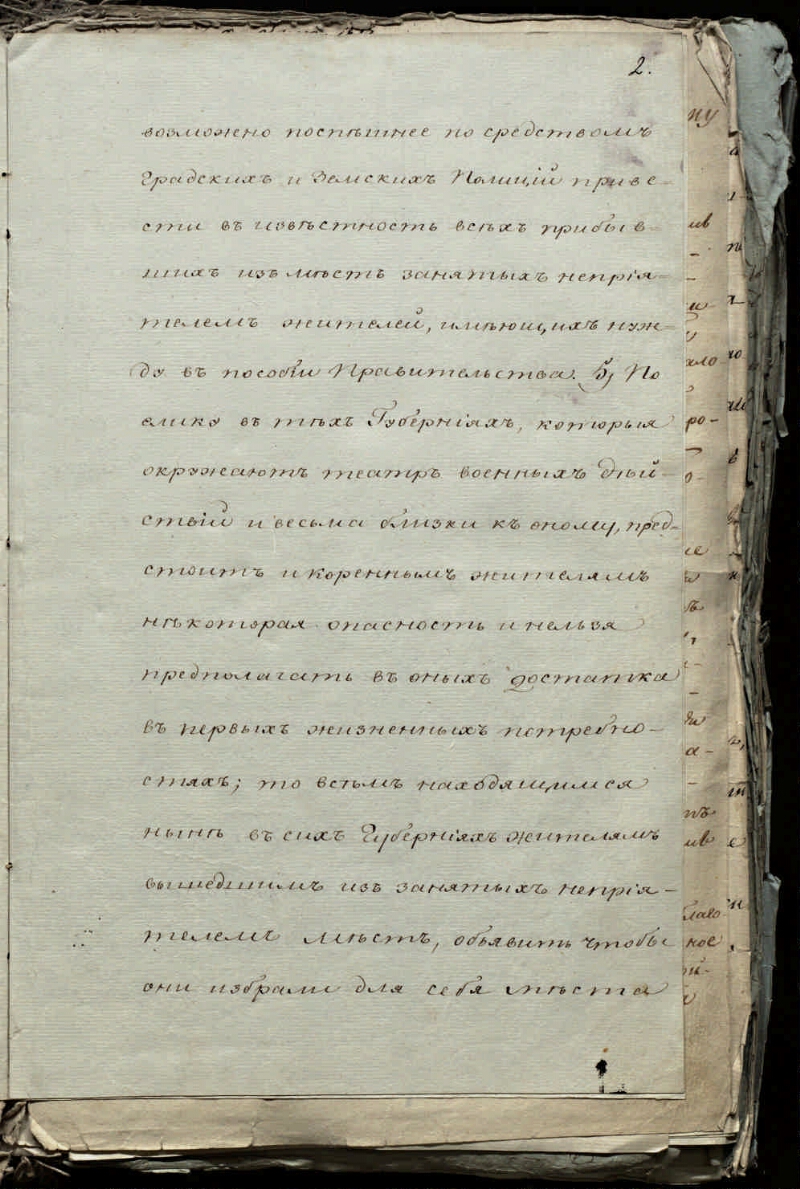 2.
возможно поспѣшнее по средствомъ
Градскихъ и Земскихъ Полицiй приве
сти въ извѣстность всѣхъ прибыв
шихъ изъ мѣстъ занятыхъ непрiя
телемъ жителей, имѣющихъ нуж
ду въ пособiи Правительства. По
елику въ тѣхъ Губернiяхъ, которыя
окружаютъ театръ военныхъ дѣй
ствiй и весьма близки къ оному, пред-
стоитъ и кореннымъ жителямъ
нѣкоторая опасность и нельзя
предполагать въ оныхъ достатка
въ первыхъ жизненныхъ потребно-
стяхъ; то всѣмъ находящимся
нынѣ въ сихъ Губернiяхъ жителямъ
вышедшимъ изъ занятыхъ непрiя-
телемъ мѣстъ, объявить чтобы
они избрали для себя мѣста